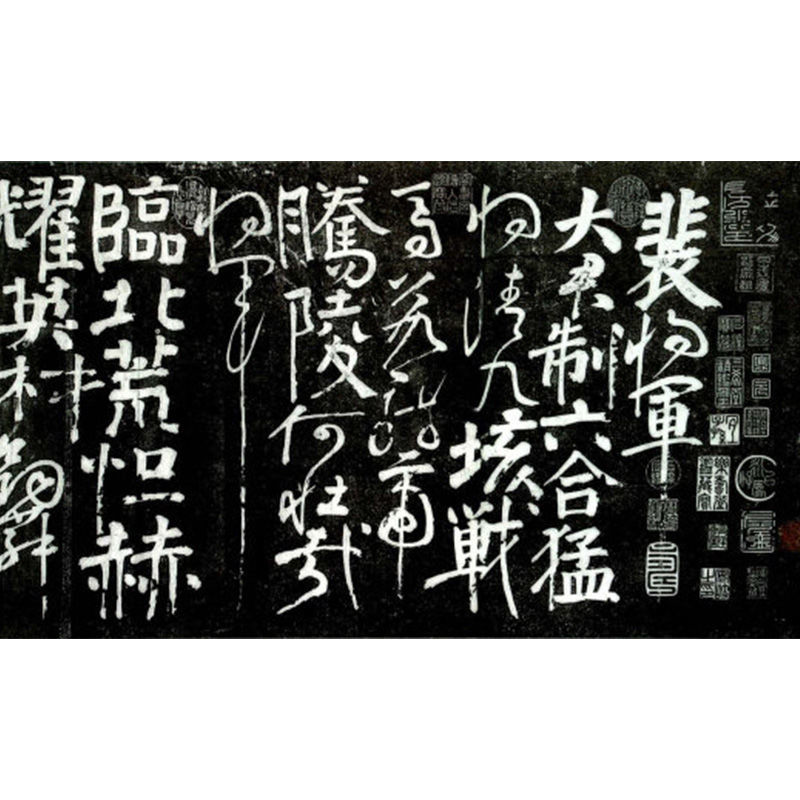 裴将軍
大君制六合猛
将清九垓戰
馬若龍虎
騰陵何壯哉
将軍
臨北荒烜赫
耀英材劍舞